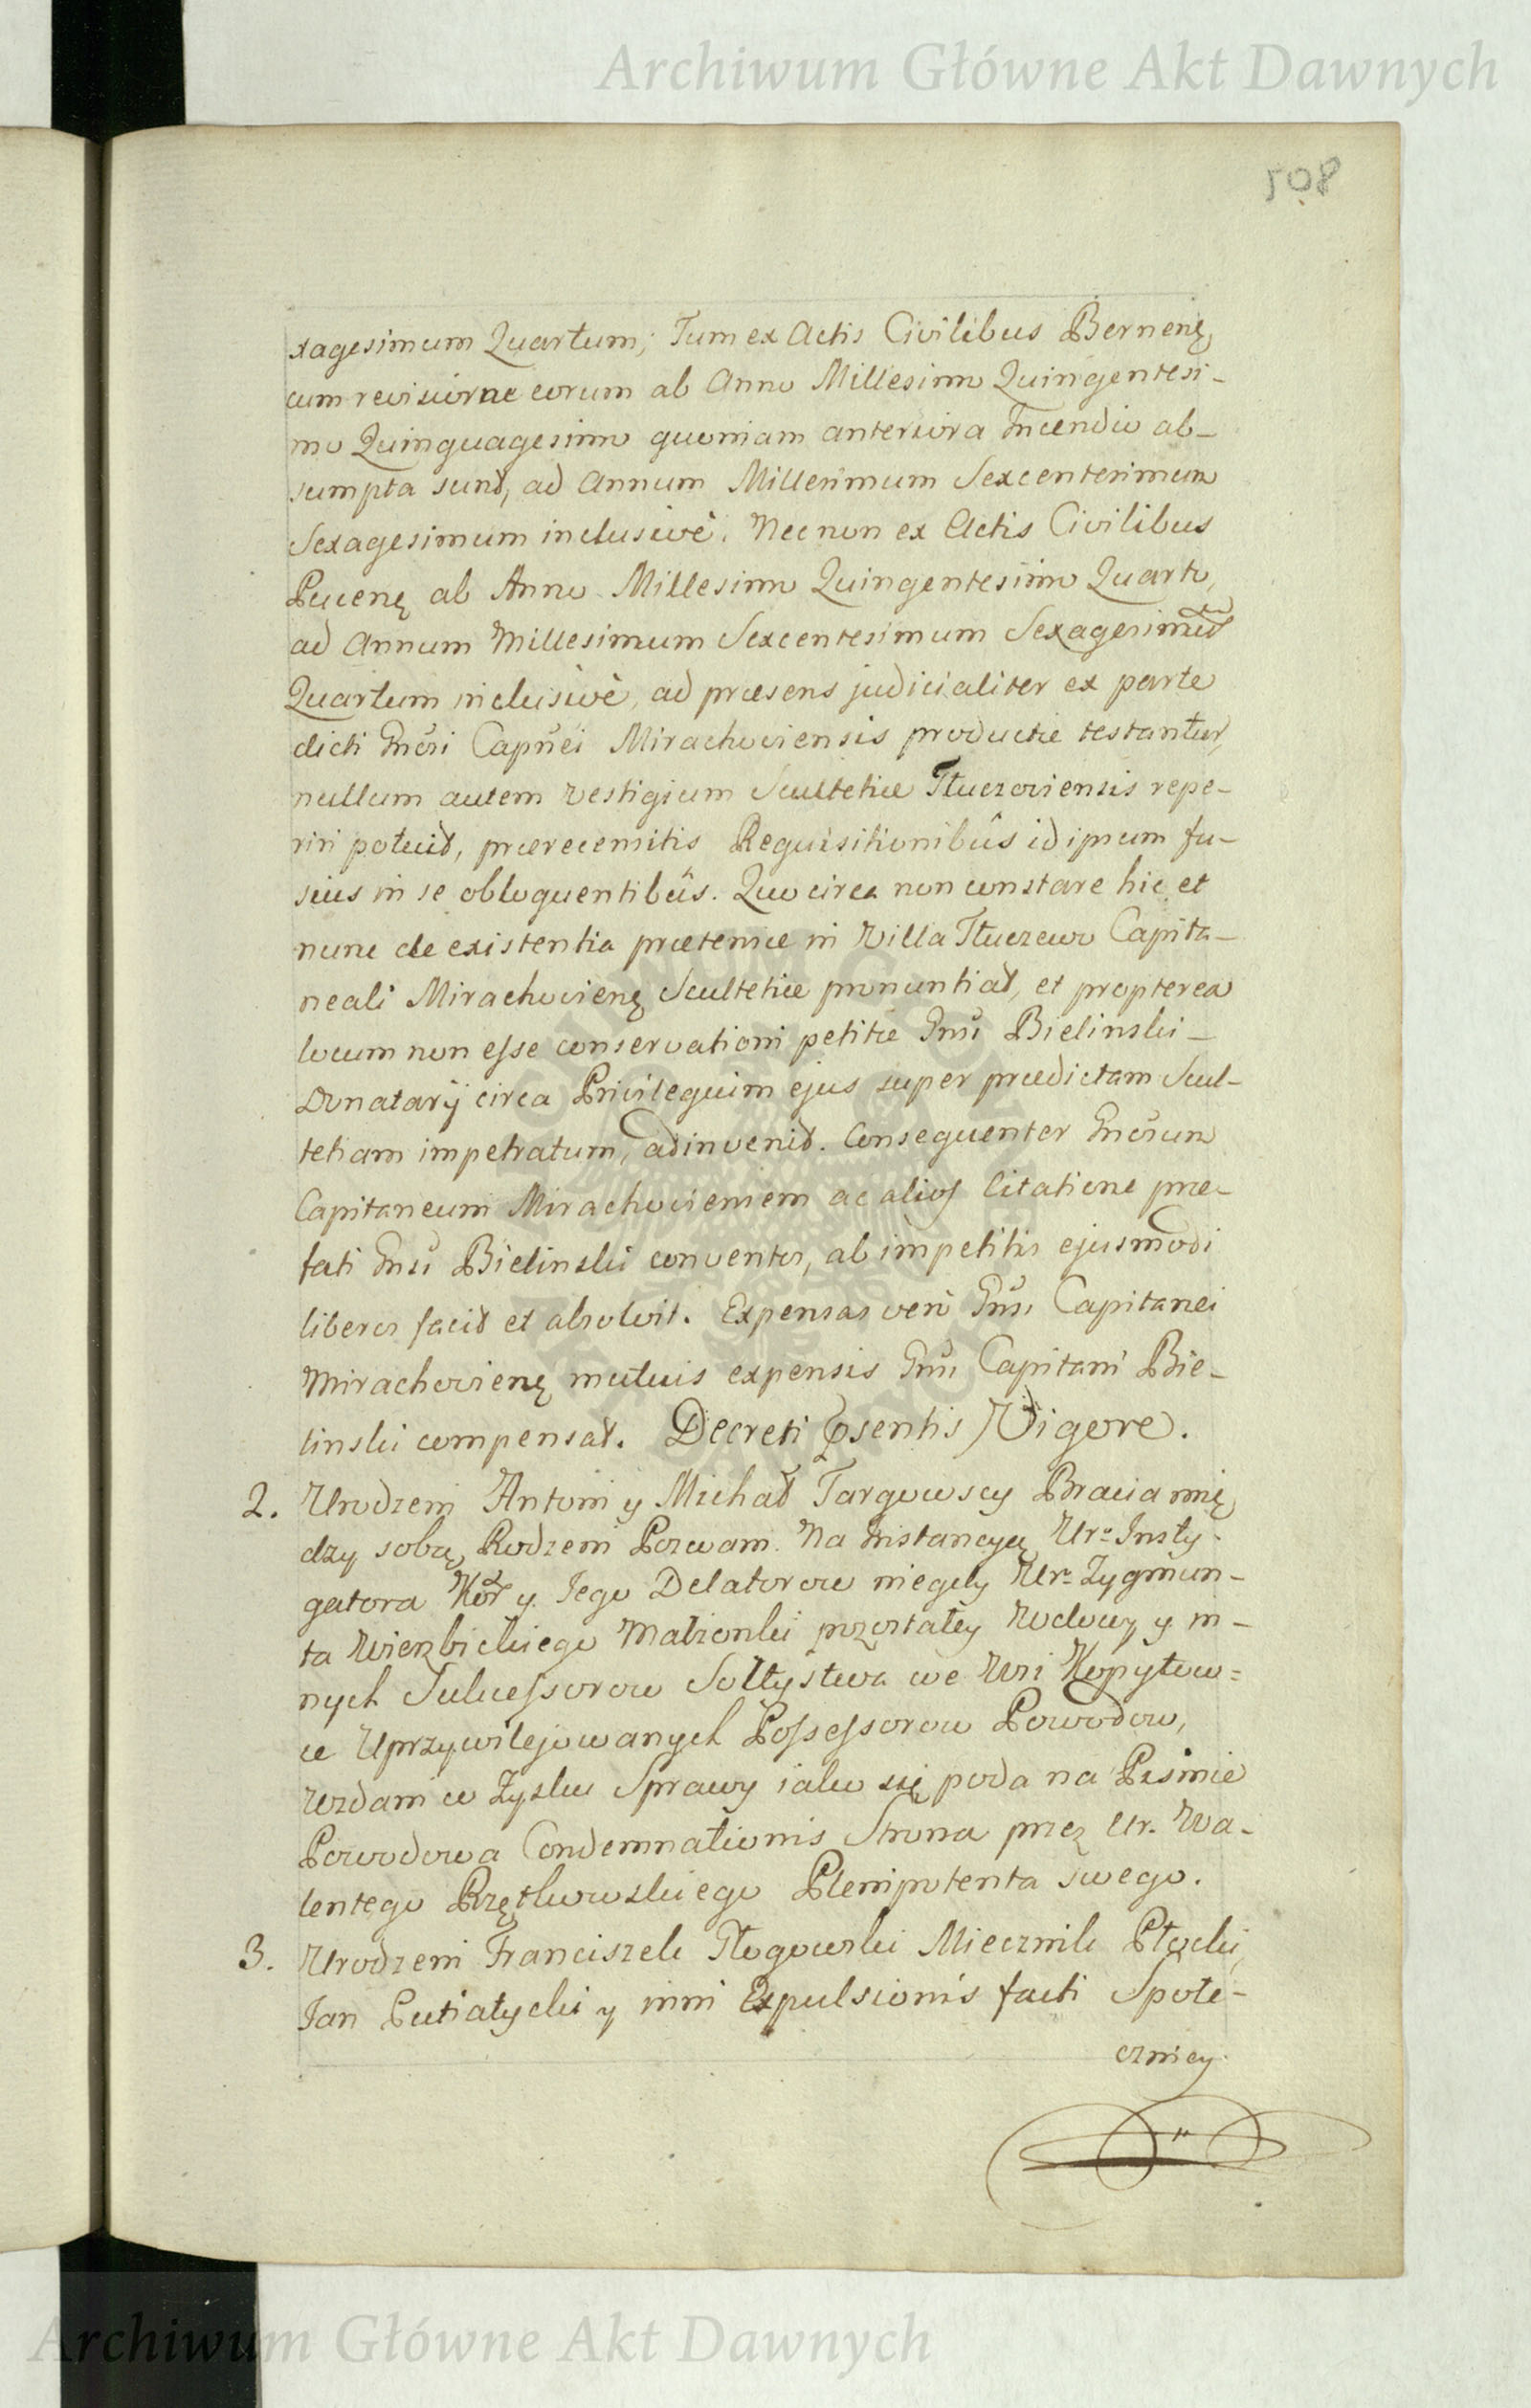 Archiwum Główne Akt Dawnych
508
xagesimum Quartum; Tum ex Actis Civilibus Bernenę
cum revisione eorum ab Anno Millesimo Quingentesi-
mo Quinquagesimo quoniam anteriora Incendio ab-
sumpta sunt, ad Annum Millesimum Sexcentesimum
Sexagesimum inclusivè. Necnon ex Actis Civilibus
Pucenę ab Anno Millesimo Quingentesimo Quarto,
ad Annum Millesimum Sexcentesimum Sexagesimum
Quartum inclusivè, ad præsens judicialiter ex parte
dicti Gnĕsi Capñei Mirachoviensis productæ testantur,
nullum autem vestigium Scultetiæ Tłuczoviensis repe-
riri potuit, prærecensitis Requisitionibûs id ipsum fu-
sius in se obloquentibûs. Quocirca non constare hic et
nunc de existentia prætensæ in Villa Tłuczewo Capita-
neali Mirachovienę Scultetiæ pronuntiat, et propterea
locum non esse conservationi petitæ Gnsi Bielinski
Donatarÿ circa Privilegium ejus super prædictam Scul-
tetiam impetratum, adinvenit. Consequenter Gnĕsum
Capitaneum Mirachoviensem ac alios Citatione præ-
fati Gnsi Bielinski conventos, ab impetitis ejusmodi
liberos facit et absolvit. Expensas verò Gnsi Capitanei
Mirachovienę mutuis expensis Gnsi Capitani Bie-
linski compensat. Decreti Pŝentis Vigore.
2. Urodzeni Antoni y Michał Targowscy Bracia mię
dzy sobą Rodzeni Pozwani. Na Instancyą Ur: Insty-
gatora Kor y Jego Delatorow niegdy Ur: Zygmun-
ta Wierzbickiego Małżonki pozostałey Wdowy y in-
nych Sukcessorow Sołtystwa we Wsi Kopytow=
ce Uprzywilejowanych Possessorow Powodow,
Wzdani w Zysku Sprawy iako się poda na Piśmie
Powodowa Condemnationis Strona przez Ur. Wa-
lentego Rzętkowskiego Plenipotenta swego.
3. Urodzeni Franciszek Głogowski Miecznik Płocki,
Jan Putiatycki y inni Expulsionis facti Społe-
cznicy.
Archiwum Główne Akt Dawnych